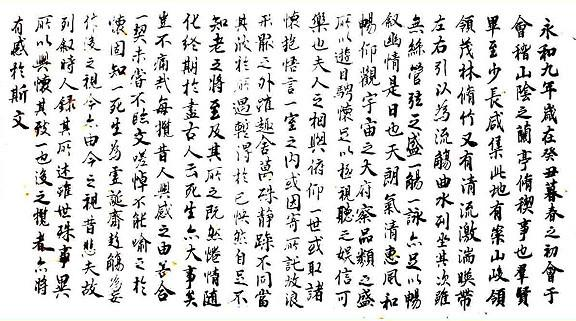 永和九年歲在癸丑暮春之初會于
會稽山陰之蘭亭脩稧事也群賢
畢至少長咸集此地有崇山峻領
領茂林脩竹又有清流激湍暎帶
左右引以為流觴曲水列坐其次雖
無絲管弦之盛一觴一詠亦足以暢
叙幽情是日也天朗氣清惠風和
暢仰觀宇宙之大俯察品類之盛
所以遊目騁懷足以極視聽之娛信可
樂也夫人之相與俯仰一世或取諸
懷抱悟言一室之內或因寄所託放浪
形骸之外雖趣舍萬殊靜躁不同當
其欣於所遇輒得於己怏然自足不
知老之將至及其所之既惓情隨
化終期於盡古人云死生亦大矣
豈不痛哉每攬昔人興感之由若合
一契未嘗不臨文嗟悼不能喻之於
懷固知一死生為虛誕齊彭殤為妄
作後之視今亦由今之視昔悲夫故
列敘時人錄其所述雖世殊事異
所以興懷其致一也後之攬者亦將
有感於斯文